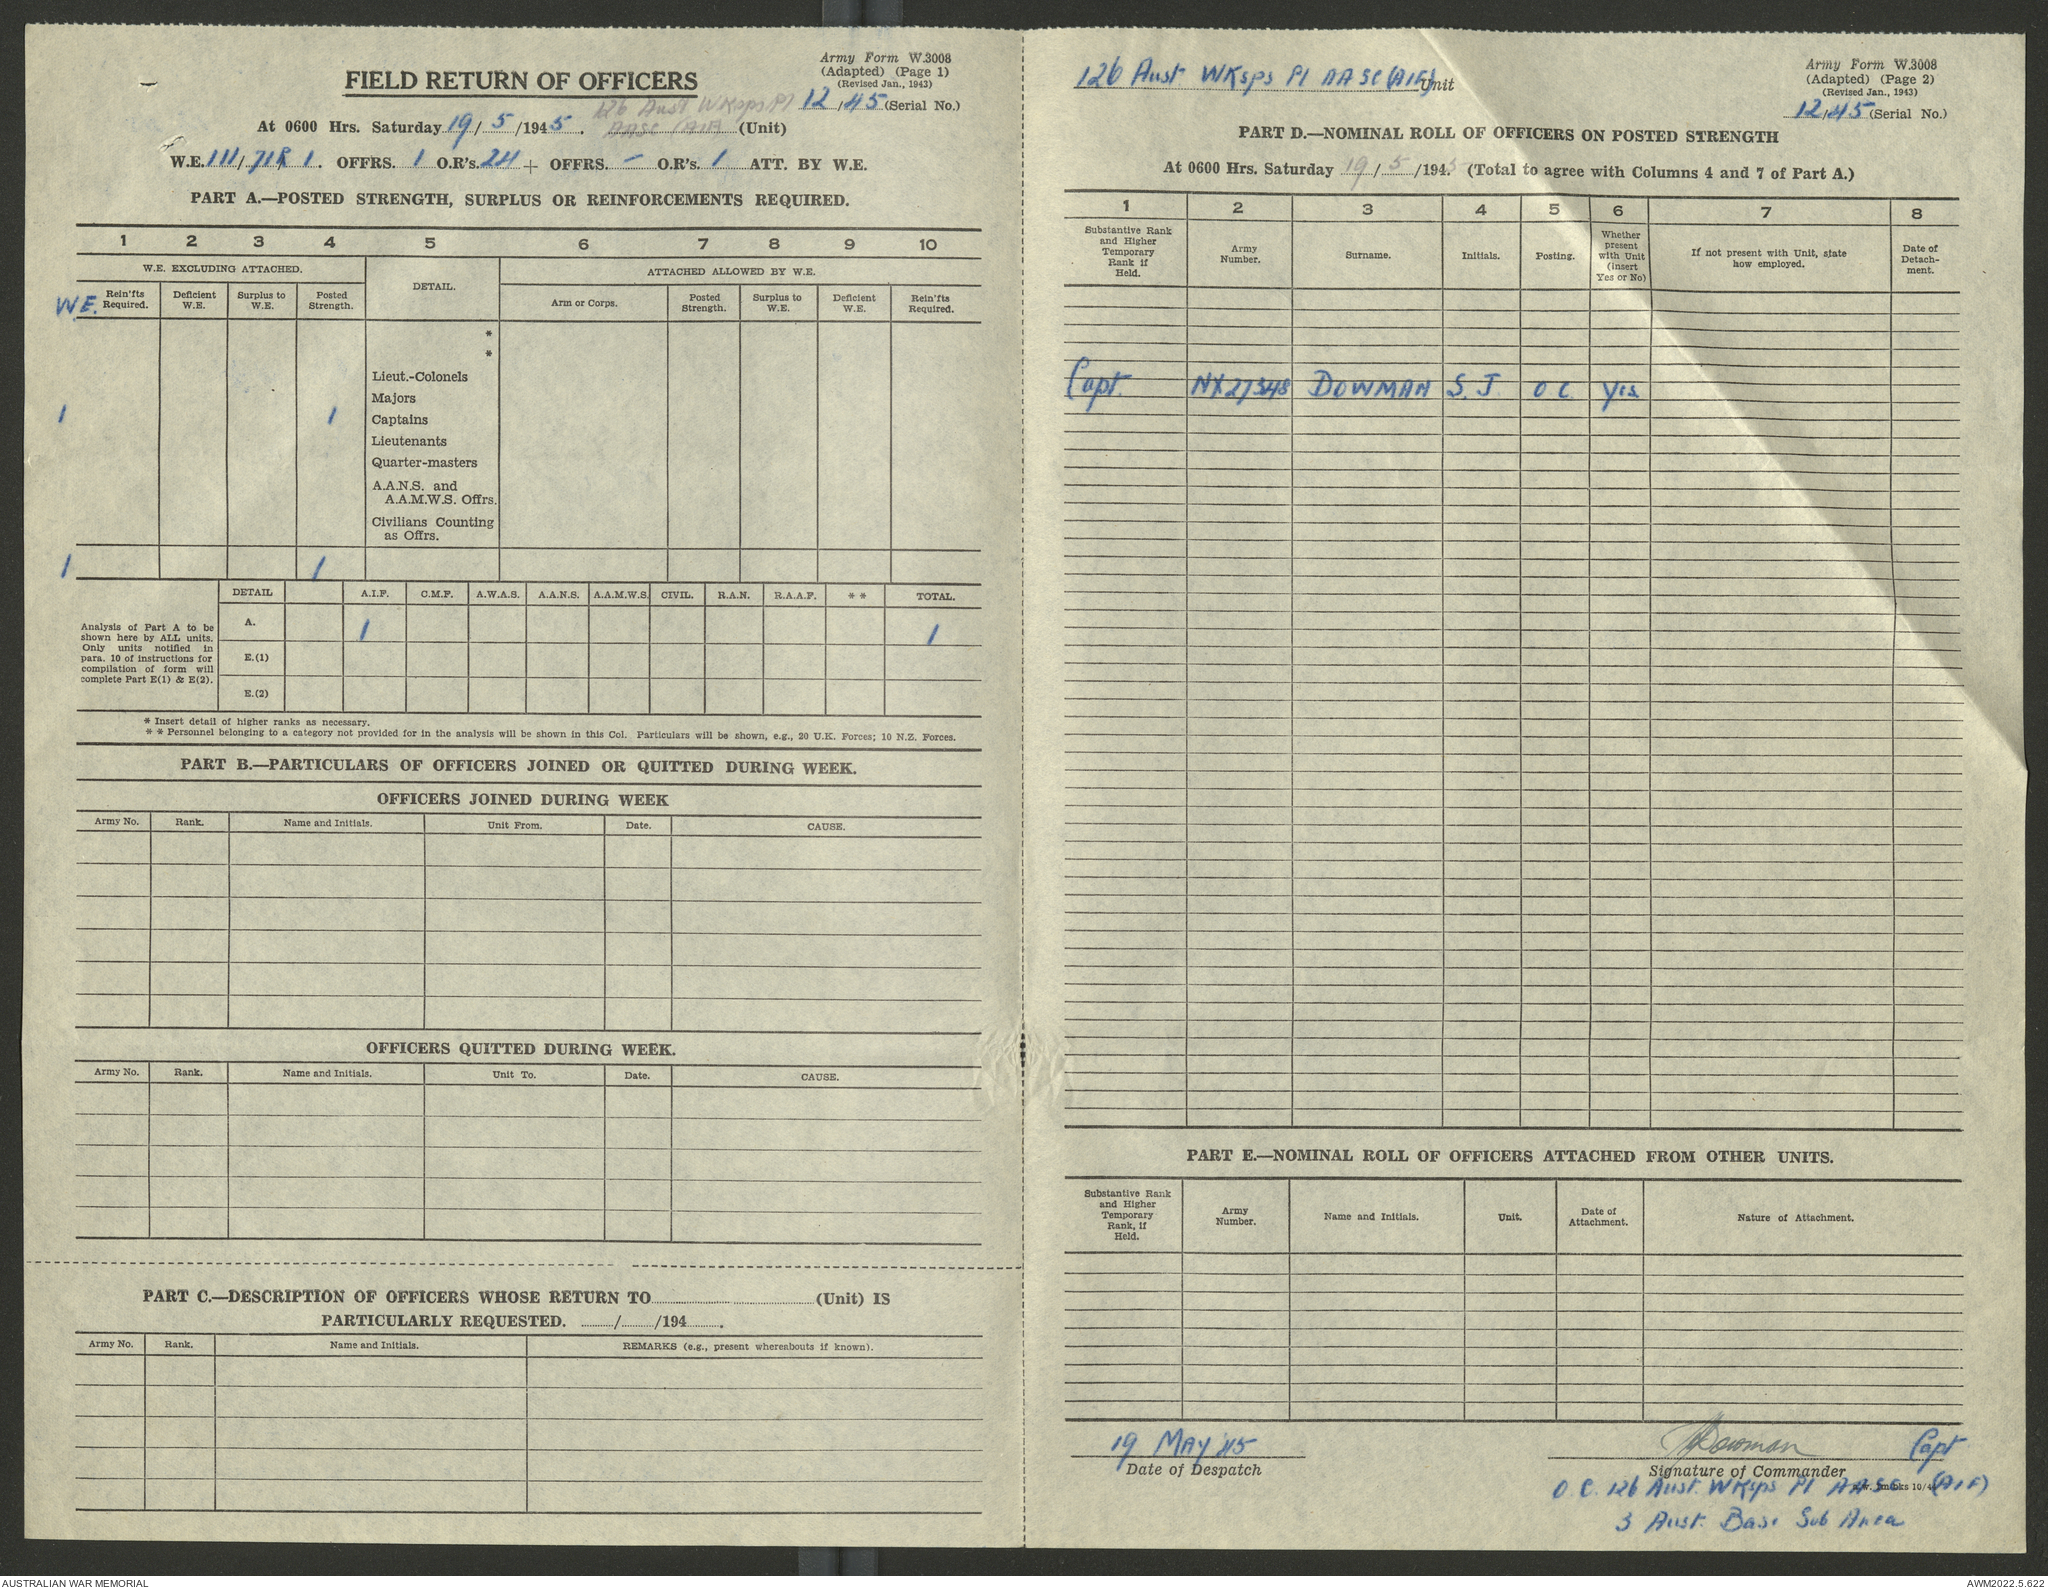 Army Form W.3008
(Adapted) (Page 1)
(Revised Jan., 1943)
FIELD RETURN OF OFFICERS
12/45 (Serial No.)
126 Aust WKsps Pl
At 0600 Hrs. Saturday 19/5/1945. AASC (AIF) (Unit)
W.E. 111/71R 1. OFFRS. 1 O.R's. 24 + OFFRS. - O.R's. 1 ATT. BY W.E.
PART A.—POSTED STRENGTH, SURPLUS OR REINFORCEMENTS REQUIRED.
1 2 3 4 5 6 7 8 9 10
W.E. EXCLUDING ATTACHED. DETAIL. ATTACHED ALLOWED BY W.E.
W.E. Rein'fts Required. Deficient W.E. Surplus to W.E. Posted Strength. Arm or Corps. Posted Strength. Surplus to W.E. Deficient W.E. Rein'fts Required.
*
*
Lieut.-Colonels
Majors
1 1 Captains
Lieutenants
Quarter-masters
A.A.N.S. and
A.A.M.W.S. Offrs.
Civilians Counting
as Offrs.
1 1
DETAIL A.I.F. C.M.F. A.W.A.S. A.A.N.S. A.A.M.W.S. CIVIL. R.A.N. R.A.A.F. * * TOTAL.
Analysis of Part A to be
shown here by ALL units.
Only units notified in
para. 10 of instructions for
compilation of form will
complete Part E(1) & E(2).
A. 1 1
E.(1)
E.(2)
* Insert detail of higher ranks as necessary.
* * Personnel belonging to a category not provided for in the analysis will be shown in this Col. Particulars will be shown, e.g., 20 U.K. Forces; 10 N.Z. Forces.
PART B.—PARTICULARS OF OFFICERS JOINED OR QUITTED DURING WEEK.
OFFICERS JOINED DURING WEEK
Army No. Rank. Name and Initials. Unit From. Date. CAUSE.
OFFICERS QUITTED DURING WEEK.
Army No. Rank. Name and Initials. Unit To. Date. CAUSE.
PART C.—DESCRIPTION OF OFFICERS WHOSE RETURN TO (Unit) IS
PARTICULARLY REQUESTED. / /194 .
Army No. Rank. Name and Initials. REMARKS (e.g., present whereabouts if known).
126 Aust WKsps Pl AASC (AIF) Unit
Army Form W.3008
(Adapted) (Page 2)
(Revised Jan., 1943)
12/45 (Serial No.)
PART D.—NOMINAL ROLL OF OFFICERS ON POSTED STRENGTH
At 0600 Hrs. Saturday 19/5/1945 (Total to agree with Columns 4 and 7 of Part A.)
1 2 3 4 5 6 7 8
Substantive Rank and Higher Temporary Rank if Held. Army Number. Surname. Initials. Posting. Whether present with Unit (insert Yes or No) If not present with Unit, state how employed. Date of Detach-ment.
Capt. NX27348 DOWMAN S. J. OC Yes
PART E.—NOMINAL ROLL OF OFFICERS ATTACHED FROM OTHER UNITS.
Substantive Rank and Higher Temporary Rank, if Held. Army Number. Name and Initials. Unit. Date of Attachment. Nature of Attachment.
19 MAY '45
Date of Despatch
Dowman Capt
Signature of Commander
O.C. 126 Aust. WKsps Pl AASC (AIF)
3 Aust. Base Sub Area
AUSTRALIAN WAR MEMORIAL
AWM2022.5.622